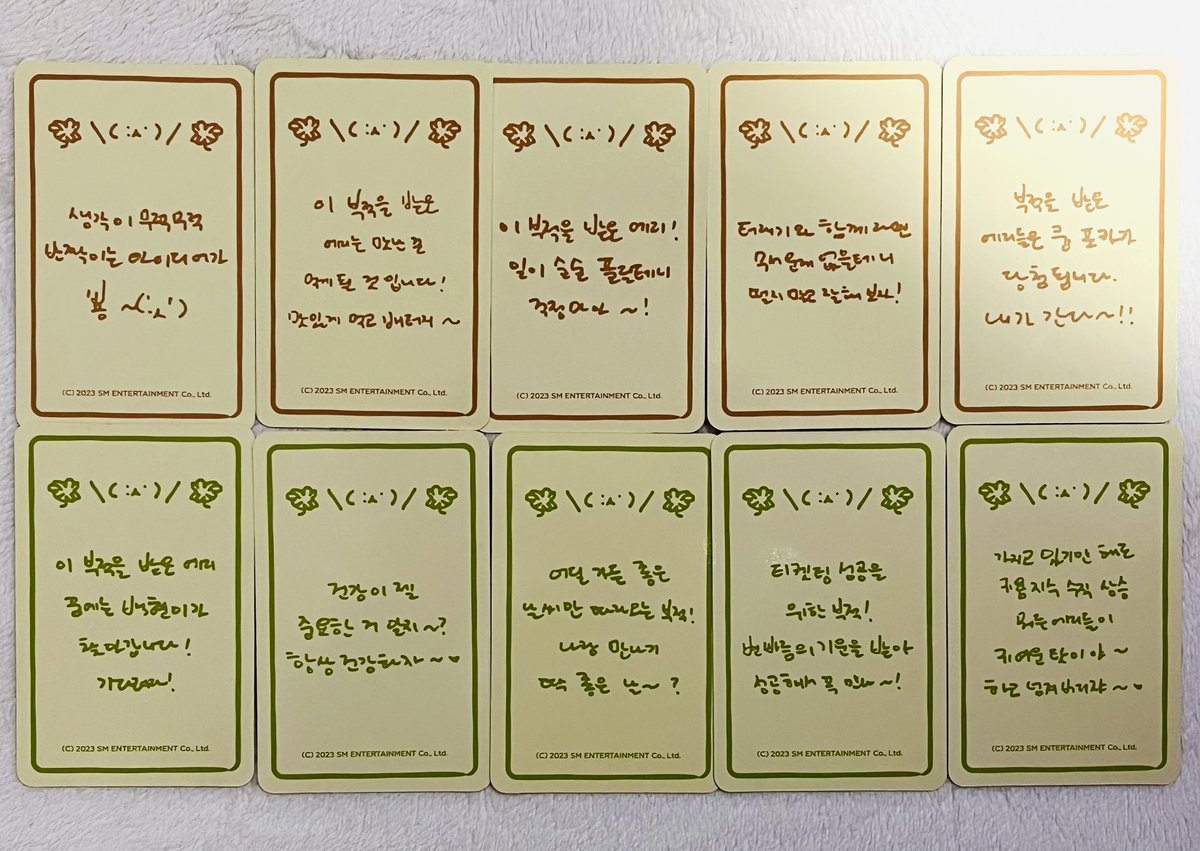 \( :ㅅ· )/
생각이 무적무적
반짝이는 아이디어가
뿅 ~(:ㅅ:)
(C) 2023 SM ENTERTAINMENT Co., Ltd.
\( :ㅅ· )/
이 부적을 받은
에리는 맛난 걸
먹게 될 것 입니다!
맛있게 먹고 버려줘 ~
(C) 2023 SM ENTERTAINMENT Co., Ltd.
\( :ㅅ· )/
이 부적을 받은 에리!
일이 술술 풀릴테니
걱정마아 ~!
(C) 2023 SM ENTERTAINMENT Co., Ltd.
\( :ㅅ· )/
함께라면
없을테니
먹고 잘해보자!
(C) 2023 SM ENTERTAINMENT Co., Ltd.
\( :ㅅ· )/
부적을 받은
에리들은 큥 포카가
당첨됩니다.
내가 간다~!!
(C) 2023 SM ENTERTAINMENT Co., Ltd.
\( :ㅅ· )/
이 부적을 받은 에리
꿈에는 백현이가
찾아갑니다!
기다려라!
(C) 2023 SM ENTERTAINMENT Co., Ltd.
\( :ㅅ· )/
건강이 젤
중요한 거 알지~?
항상 건강하자~♥
(C) 2023 SM ENTERTAINMENT Co., Ltd.
\( :ㅅ· )/
어딜 가든 좋은
날씨만 따라오는 부적!
나랑 만나기
딱 좋은 날~?
(C) 2023 SM ENTERTAINMENT Co., Ltd.
\( :ㅅ· )/
티켓팅 성공을
위한 부적!
기운을 받아
성공해서 꼭 만나~!
(C) 2023 SM ENTERTAINMENT Co., Ltd.
\( :ㅅ· )/
가지고 있기만 해도
귀욤지수 수직 상승
에리들이
귀여운 탓이야~
하고 넘겨버리쟈~♥
(C) 2023 SM ENTERTAINMENT Co., Ltd.